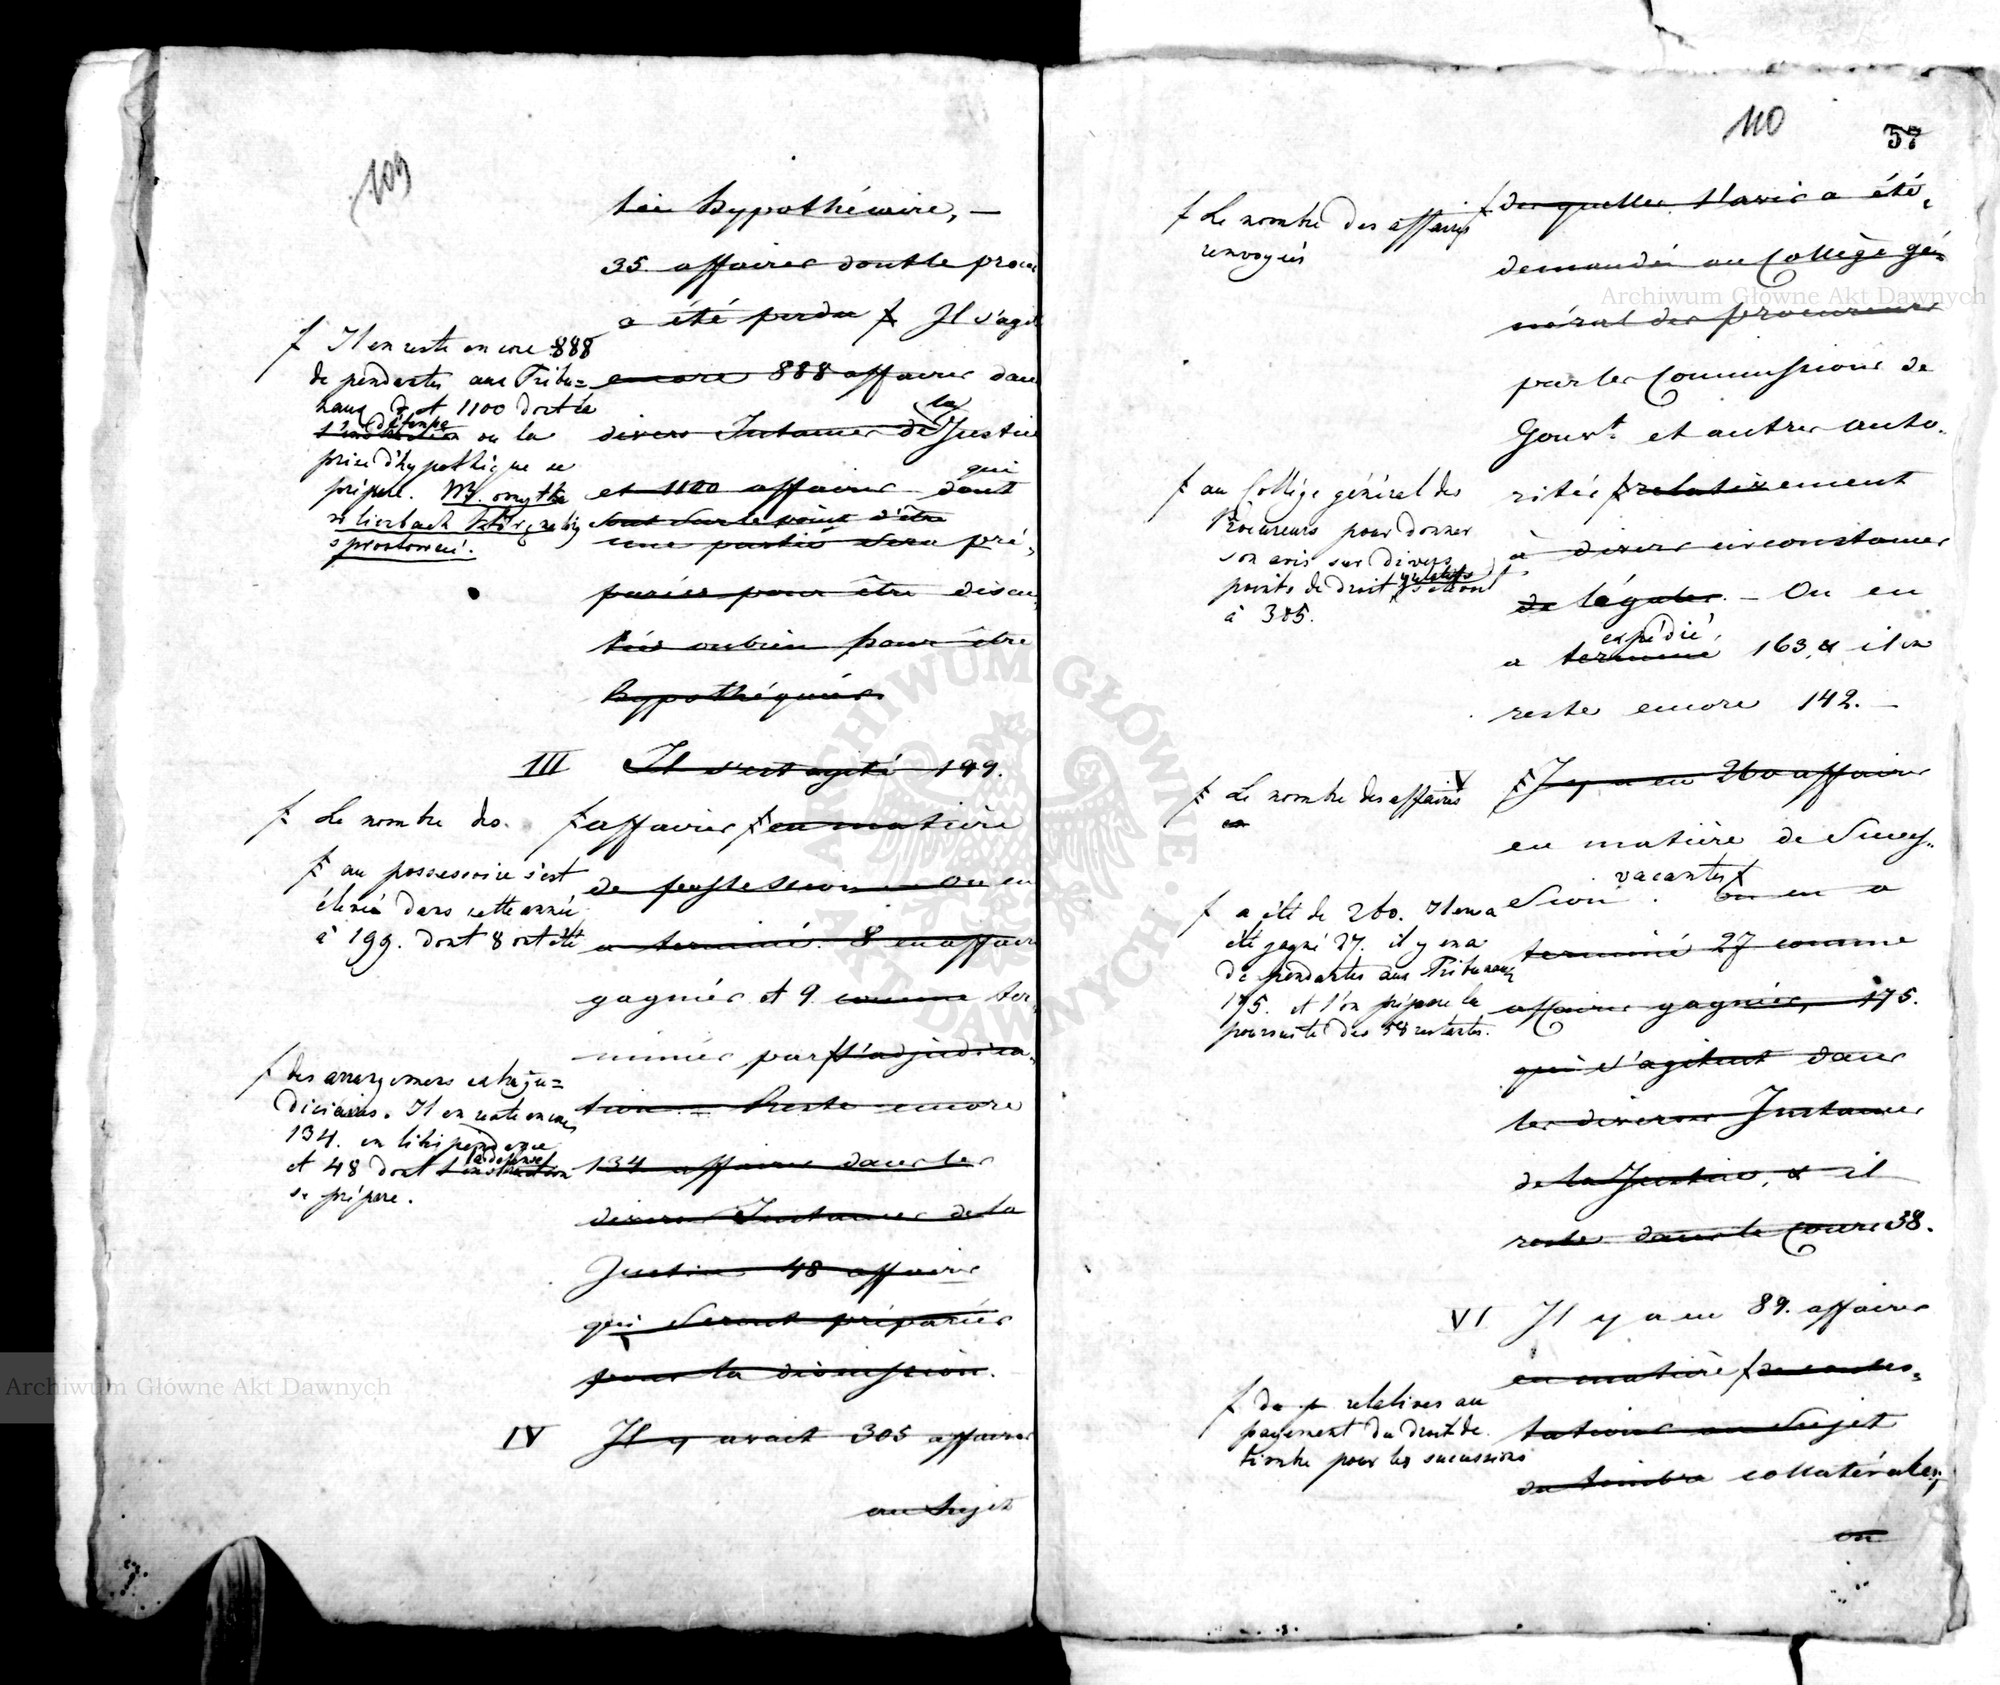 109
tie hypothécaire, —
35. affaires dont le procès
a été perdu Il s'agit
encore 888 affaires dans
divers Instances de la Justice
et 1100 affaires dont
qui
sont sur le point d'être
une partie sera pré-
parées pour être discu-
tées ou bien pour être
hypothéquées
Il en reste encore 888
de pendantes aux Tribu=
naux et 1100 dont la
défense
l'instruction ou la
prise d'hypothèque se
prépare.
III Il s'est agité 199.
affaires en matière
de possession — On en
a terminé 8 en affaires
gagnées et 9 comme ter-
minées par l'adjudica-
tion. — Reste encore
134 affaires dans les
divers Instances de la
Justice 48 affaires
qui seront préparées
pour la discussion.
Le nombre des
au possessoire s'est
élevé dans cette année
à 199. dont 8 ont été
des arrangemens extraju=
diciaires. Il en reste encore
134. en litispendence
et 48 dont la défense
l'instruction
se prépare.
IV Il y avait 305 affaires
au Sujet
110
57
desquelles l'avis a été
demandé au Collège gé-
néral des procureurs
par les Commissions de
Gouvt. et autres auto-
rités relativement
à divers circonstances
de légales. — On en
expédié
a terminé 163, & il en
reste encore 142. —
Le nombre des affaires
renvoyées
au Collège général des
Procureurs pour donner
son avis sur divers
points de droit
à 305.
V Il y a eu 260 affaires
en matière de Succes-
vacantes
sion. On en a
terminé 27 comme
affaires gagnées, 175.
qui s'agitent dans
les diverses Instances
de la Justice, & il
reste dans le Cours 38.
Le nombre des affaires
en
a été de 260. Il en a
été gagné 27. il y en a
de pendantes aux Tribunaux
175. et l'on prépare la
poursuite des 58 restantes.
VI Il y a eu 89. affaires
en matière de contes-
tations au Sujet
du timbre collatérales,
on
de relatives au
payement du droit de
timbre pour les successions
Archiwum Główne Akt Dawnych
Archiwum Główne Akt Dawnych
ARCHIWUM GŁÓWNE AKT DAWNYCH